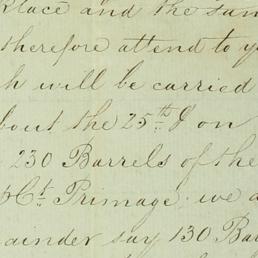 place and the sum
therefore attend to y
h will be carried
bout the 25th & on
230 Barrels of the
p Ct Primage, we a
ainder say 130 Ba